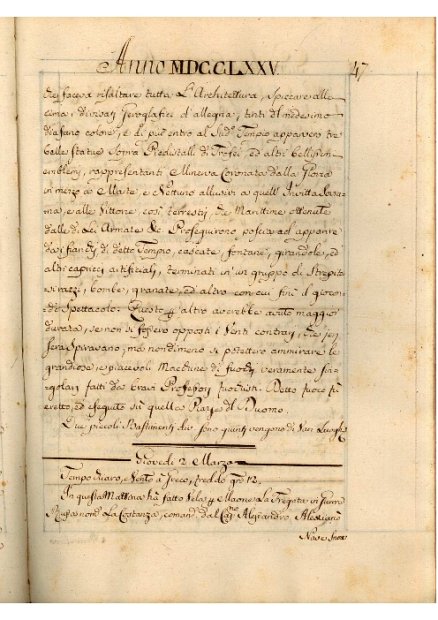 Anno MDCCLXXV. 47
che faceva risaltare tutta l'Architettura, spiccare alla
cima, diversi Jeroglifici d'allegria, tinti d'medesimo
diafano colore, e di più entro al Sud.o Tempio apparvero tre
belle statue sopra Piedistalli di Trofei, ed altri belliss.mi
emblemi, rappresentanti Minerva Coronata dalla Gloria
in mezzo a Marte, e Nettuno allusivi a quell' Invitta
ma, e alle Vittorie così terrestri, che Marittime ottenute
dalle di Lei Armate &c. Proseguirono poscia ad apparire
da fianchi di detto Tempio, cascate, fontane, girandole, ed
altri capricci artificiali, terminati in un gruppo di strepito
si razzi, bombe, granate, ed altro con cui finì il giocon-
do Spettacolo. Questo altro averebbe avuto maggior
durata, se non si fossero opposti i Venti contrarj, che jeri
sera spiravano; ma nondimeno si potettero ammirare le
grandiose, e piacevoli Macchine di fuochi veramente sin-
golari fatti da bravi Professori fuochisti. Detto fuoco fù
eretto, ed eseguito sù quella Piazza d' Duomo.
Due piccoli Bastimenti che sono giunti vengono di Vari Luoghi
Giovedì 2 Marzo
Tempo chiaro, Vento a Greco, freddo gr. 12.
In questa Mattina hà fatto Vela p Maone la Fregata in Guerra
Russa nom. La Costanza, comand. dal Cap.no Alessandro
Nave Ing